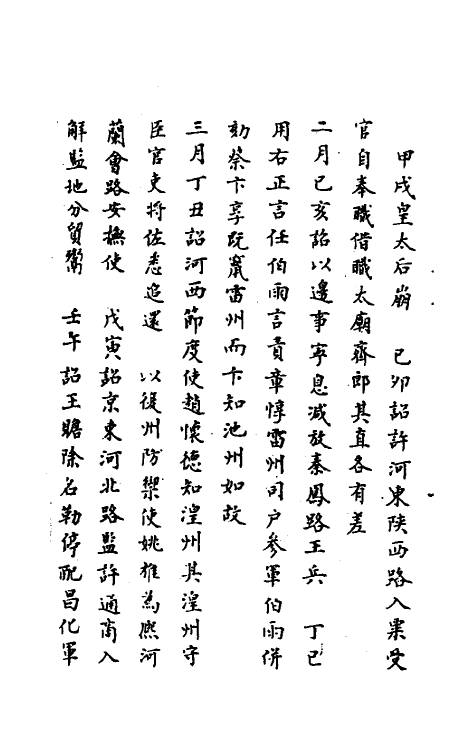 甲戌皇太后崩　己卯詔許河東陝西路入粟受
官自奉職借職太廟齊郎其直各有差
二月己亥詔以邊事寧息減放秦鳳路王兵　丁巳
用右正言任伯雨言責章惇雷州司户參軍伯雨併
劾蔡卞享既竄雷州而卞知池州如故
三月丁丑詔河西節度使趙懷德知湟州其湟州守
臣官吏將佐悉追還　以復州防禦使姚雄為熈河
蘭會路安撫使　戊寅詔京東河北路盬許通商入
解盬地分貿鬻　壬午詔王贍除名勒停配昌化軍